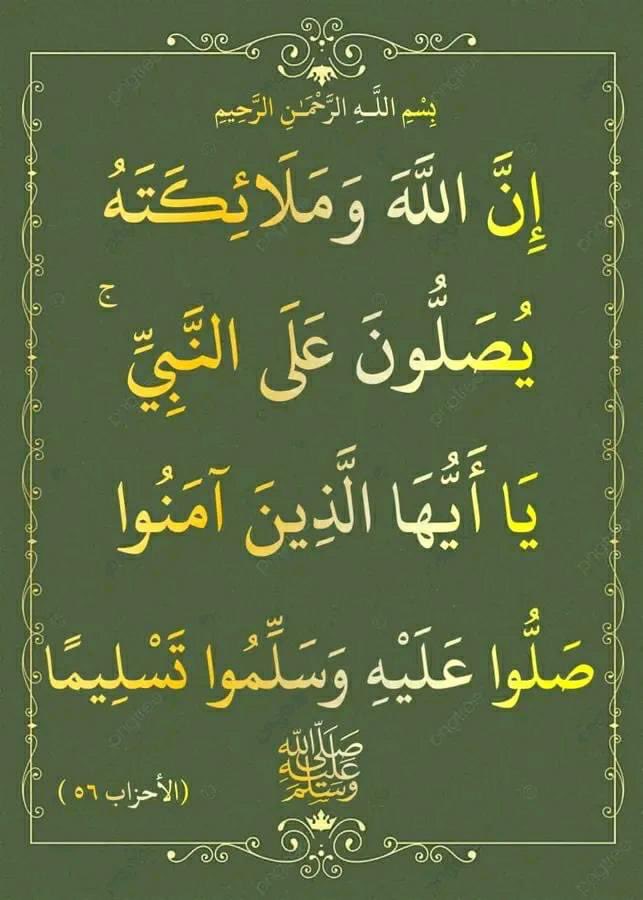 بِسْمِ اللَّـهِ الرَّحْمَـٰنِ الرَّحِيمِ
إِنَّ اللَّهَ وَمَلَائِكَتَهُ
يُصَلُّونَ عَلَى النَّبِيِّ ۚ
يَا أَيُّهَا الَّذِينَ آمَنُوا
صَلُّوا عَلَيْهِ وَسَلِّمُوا تَسْلِيمًا
صَلَّى اللَّه
عَلَيْهِ
وَسَلَّمَ
(الأحزاب ٥٦ )